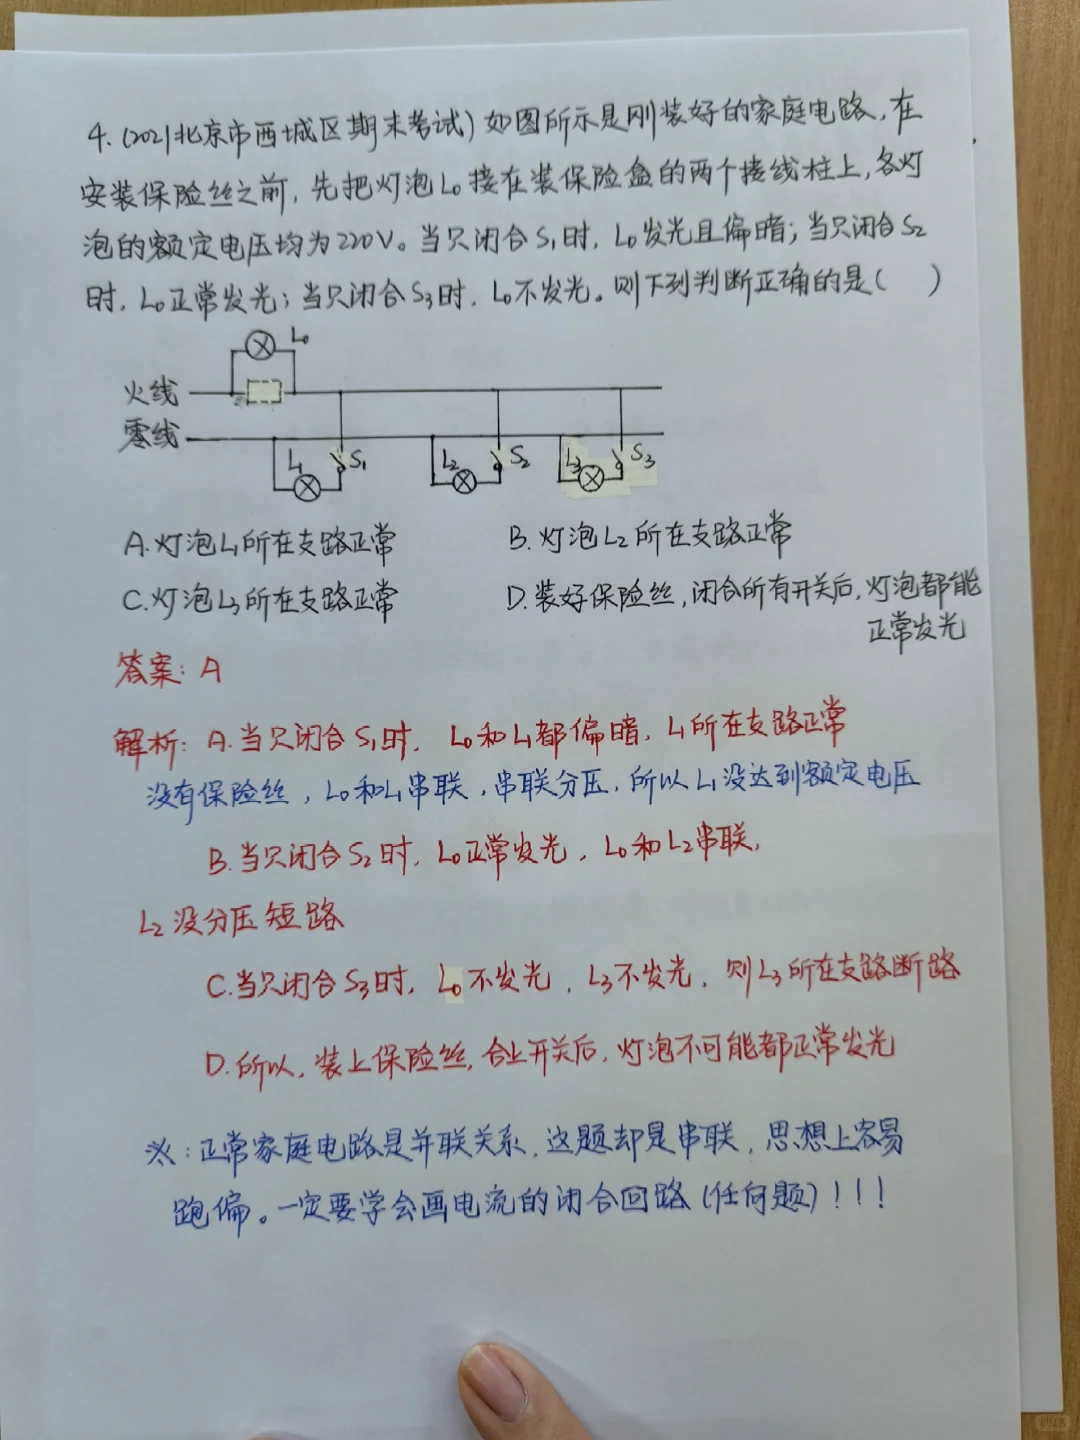 4. (2021北京市西城区期末考试) 如图所示是刚装好的家庭电路,在
安装保险丝之前,先把灯泡L₀接在装保险盒的两个接线柱上,各灯
泡的额定电压均为220V。当只闭合S₁时,L₀发光且偏暗;当只闭合S₂
时,L₀正常发光;当只闭合S₃时,L₀不发光。则下列判断正确的是( )
L₀
火线
零线
L₁ S₁ L₂ S₂ L₃ S₃
A.灯泡L₁所在支路正常 B.灯泡L₂所在支路正常
C.灯泡L₃所在支路正常 D.装好保险丝,闭合所有开关后,灯泡都能
正常发光
答案: A
解析: A.当只闭合S₁时, L₀和L₁都偏暗, L₁所在支路正常
没有保险丝, L₀和L₁串联,串联分压,所以L₁没达到额定电压
B.当只闭合S₂时, L₀正常发光, L₀和L₂串联,
L₂没分压短路
C.当只闭合S₃时, L₀不发光, L₃不发光, 则L₃所在支路断路
D.所以,装上保险丝,合上开关后,灯泡不可能都正常发光
※:正常家庭电路是并联关系,这题却是串联,思想上容易
跑偏。一定要学会画电流的闭合回路(任何题)!!!